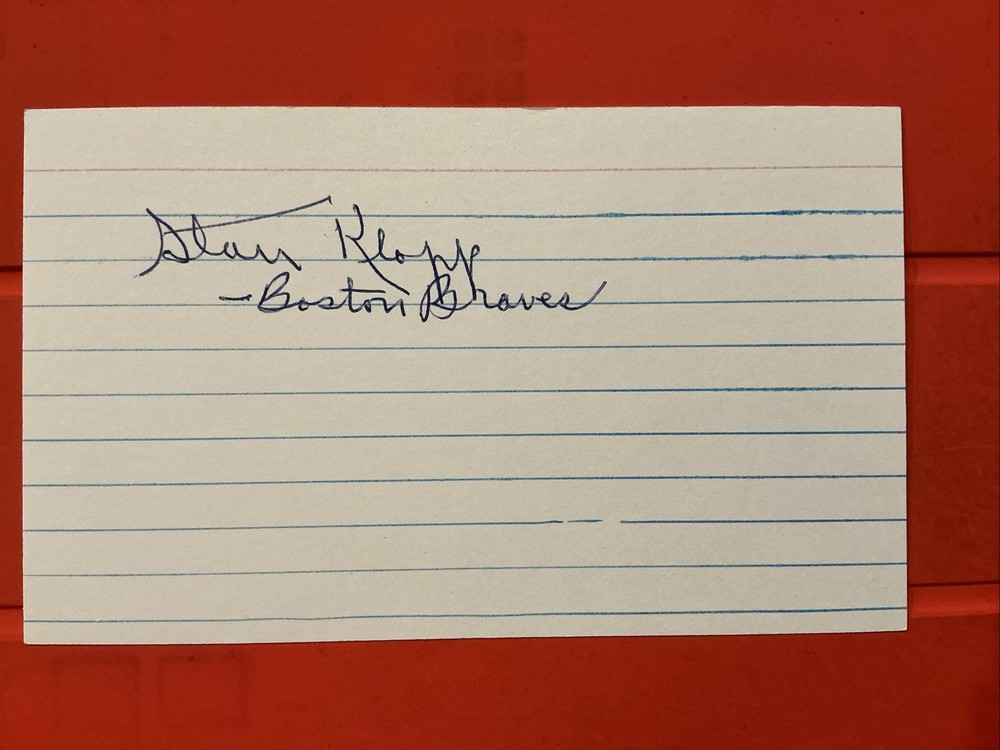 Stan Klopp
- Boston Braves